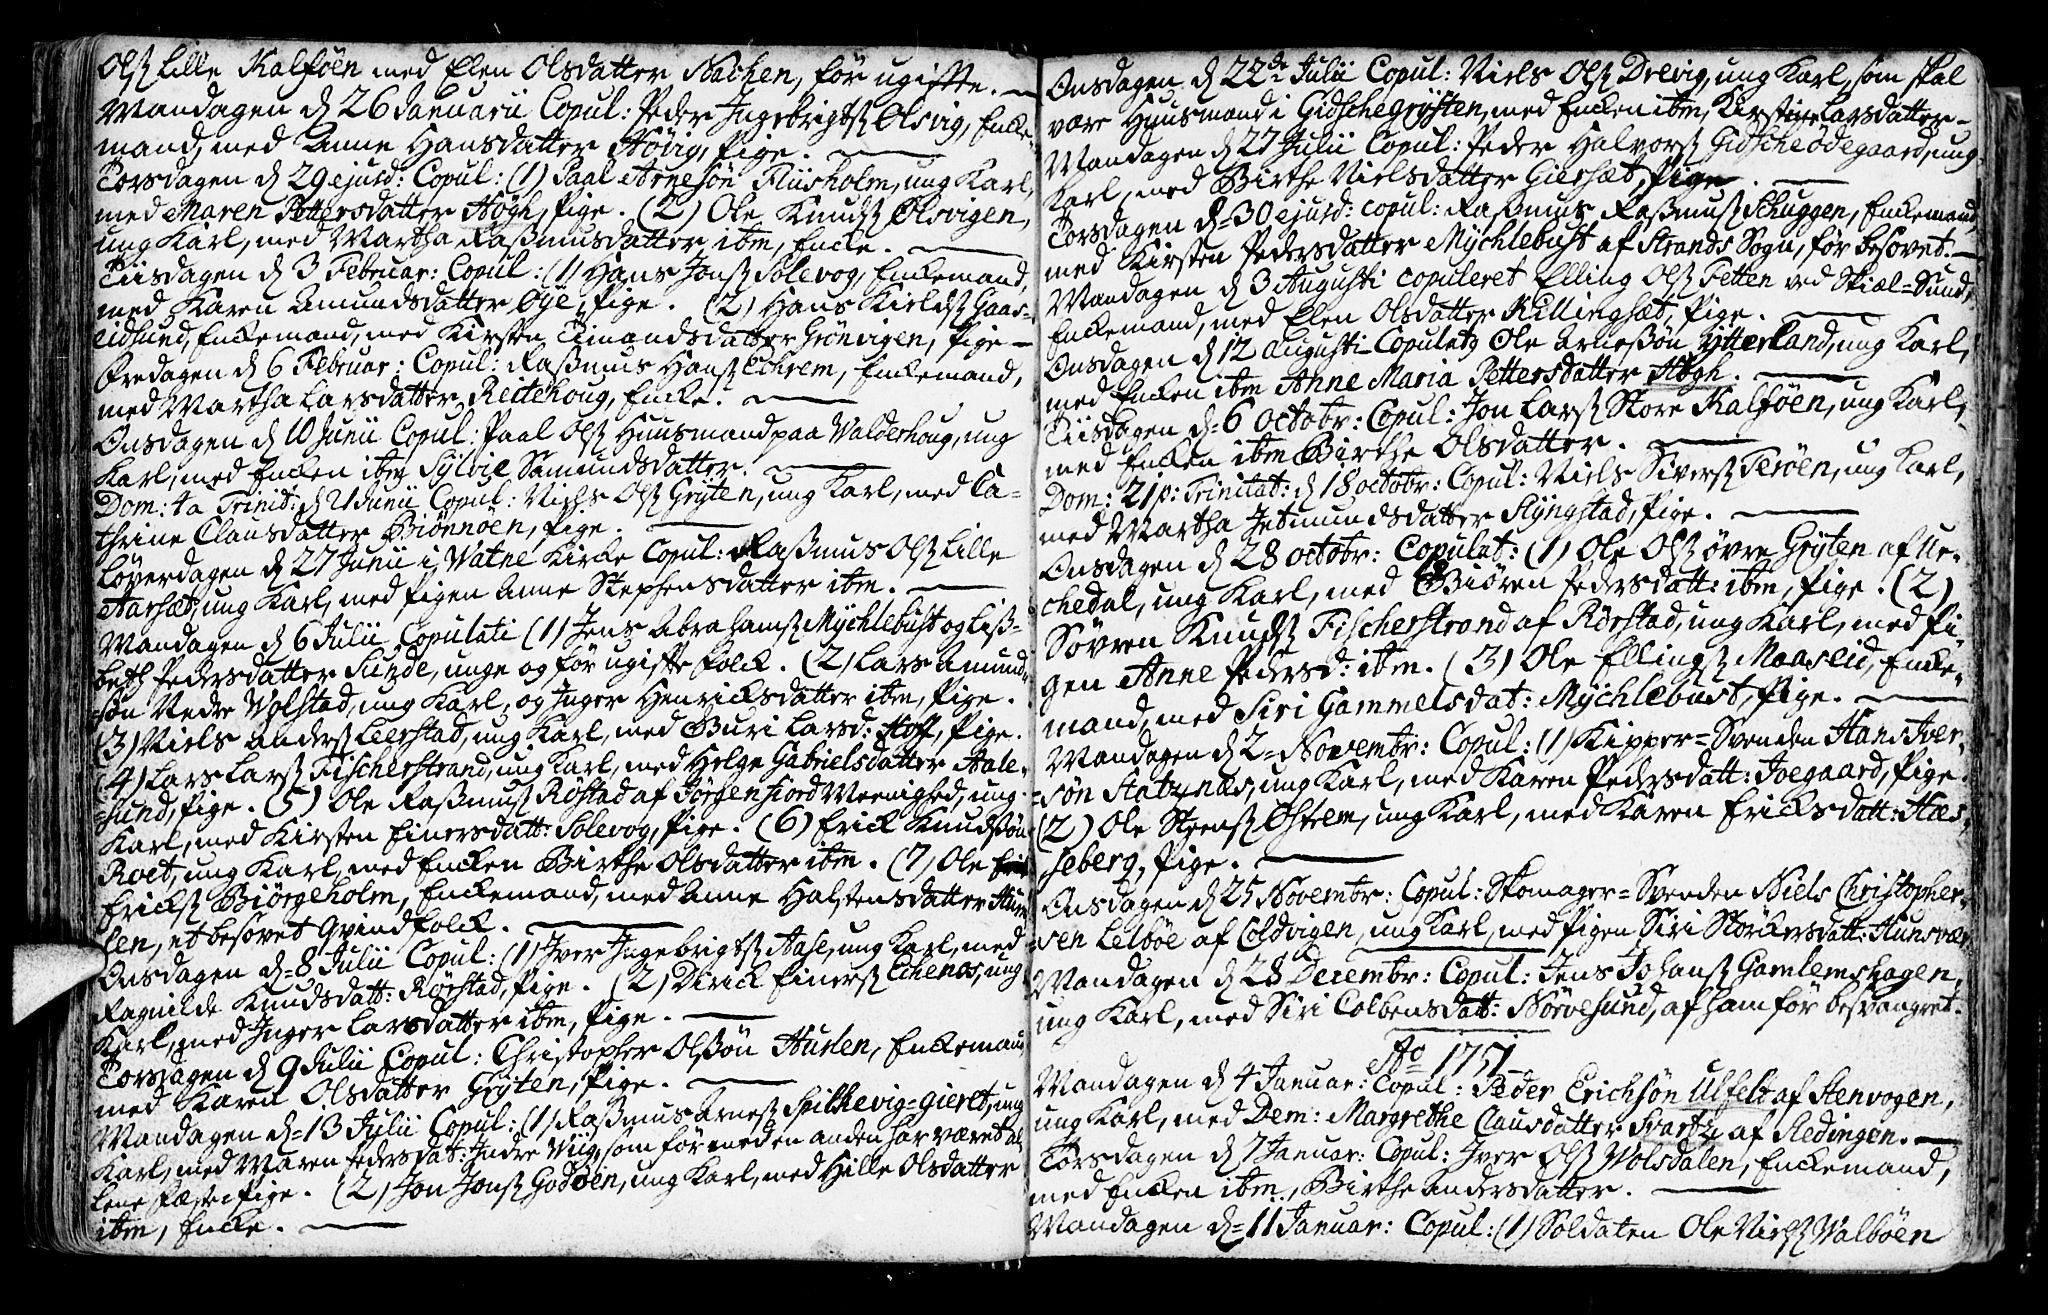 Olß Lille Kalføen med Elen Olsdatter Nachen, før ugifte.
Mandagen d 26 Januarii Copul: Peder Ingebrigtß Olsvig, Encke-
mand, med Anne Hansdatter Høvig, Pige.
Torsdagen d 29 ejusd: Copul: (1) Paal Arnesøn Fliisholm, ung Karl,
med Maren Pettersdatter Høgh, Pige. (2) Ole Knudß Olsvigen,
ung Karl, med Martha Raßmusdatter ibm, Encke.
Tiisdagen d 3 Februar: Copul: (1) Hans Jonß Solevog, Enckemand,
med Karen Amundsdatter Øye, Pige. (2) Hans Kieldß Gaas-
eidsund, Enckemand, med Kirsten Timandsdatter Grønvigen, Pige
Fredagen d 6 Februar: Copul: Raßmus Hansß Echrem, Enckemand,
med Martha Larsdatter Reitehoug, Encke.
Onsdagen d 10 Junii Copul: Paal Olß Huusmand paa Walderhoug, ung
Karl, med Encken ibm Sylvie Samundsdatter.
Dom: 4a Trinit: d 21 Junii Copul: Niels Olß Gryten, ung Karl, med Ca-
thrine Clausdatter Biønnøen, Pige.
Løverdagen d 27 Junii i Watne Kirke Copul: Raßmus Olß Lille
Aarsæt, ung Karl, med Pigen Anne Stephensdatter ibm.
Mandagen d 6 Julii Copulati (1) Jens Abrahamsß Mychlebust og Liß-
beth Pedersdatter Sunde, unge og før ugifte folck. (2) Lars Amund-
søn Nedre Wolstad, ung Karl, og Inger Henricksdatter ibm, Pige.
(3) Niels Andersß Leerstad, ung Karl, med Guri Larsd: Hoff, Pige.
(4) Lars Larsß Fischerstrand, ung Karl, med Helge Gabrielsdatter Aale-
sund, Pige. (5) Ole Raßmusß Røstad af Jørgenfiord Meenighed, ung
Karl, med Kirsten Einersdatt: Solevog, Pige. (6) Erick Knudsøn
Roet, ung Karl, med Encken Birthe Olsdatter ibm. (7) Ole
Ericksß Biørgeholm, Enckemand, med Anne Halstensdatter Hur-
len, et besovet Qvindfolck.
Onsdagen d 8 Julii Copul: (1) Iver Ingebrigtß Aase, ung Karl, med
Ragnilde Knudsdatt: Rørstad, Pige. (2) Dirick Einersß Echenæs, ung
Karl, med Inger Larsdatter ibm, Pige.
Torsdagen d 9 Julii Copul: Christopher Olsøn Hurlen, Enckemand
med Karen Olsdatter Gryten, Pige.
Mandagen d 13 Julii Copul: (1) Raßmus Arnesß Spilkevig-gieret, ung
Karl, med Maren Pedersdat: Indre Viig, som før med en anden har været al-
lene fæstet Pige. (2) Jon Jonß Godøen, ung Karl, med Hille Olsdatter
ibm, Encke.
Onsdagen d 22de Julii Copul: Niels Olß Drevig, ung Karl, som skal
være Huusmand i Gidschegrysten, med Encken ibm, Kirstine Larsdatter
Mandagen d 27 Julii Copul: Peder Halvorsß Gidscheødegaard, ung
Karl, med Birthe Nielsdatter Giersæt, Pige.
Torsdagen d 30 ejusd: copul: Raßmus Raßmusß Schuggen, Enckemand,
med Kirsten Pedersdatter Mychlebust af Strands Sogn, før besovet.
Mandagen d 3 Augusti copuleret Elling Olß Fetten ved Skiæl-Sund,
Enckemand, med Elen Olsdatter Killingsæt, Pige.
Onsdagen d 12 Augusti Copulatz Ole Arnesøn Ytterland, ung Karl,
med Encken ibm Anne Maria Pettersdatter Høgh.
Tiisdagen d 6 Octobr: Copul: Jon Larsß Store Kalføen, ung Karl,
med Encken ibm Birthe Olsdatter.
Dom: 21 p: Trinitat: d 18 octobr: Copul: Niels Siversß Terøen, ung Karl,
med Martha Jetmundsdatter Slyngstad, Pige.
Onsdagen d 28 octobr: Copulat: (1) Ole Olß øvre Gryten af Ve-
chedal, ung Karl, med Biøren Pedersdatt: ibm, Pige. (2)
Søvren Knudß Fischerstrand af Rørstad, ung Karl, med Pi-
gen Anne Pedersd: ibm. (3) Ole Ellingsß Maaseid, Encke-
mand, med Siri Gammelsdat: Mychlebust, Pige.
Mandagen d 2 Novembr: Copul: (1) Kipper-Svenden Hans Iver-
søn Statznæs, ung Karl, med Karen Pedersdatt: Joegaard, Pige.
(2) Ole Steensß Østrem, ung Karl, med Karen Ericksdatt: Hæs-
seberg, Pige.
Onsdagen d 25 Novembr: Copul: Skomager-Svenden Niels Christopher-
sen Lelbøe af Coldvigen, ung Karl, med Pigen Siri Storckersdatt: Hunsvær
Mandagen d 28 Decembr: Copul: Jens Johansß Gamlemshagen,
ung Karl, med Siri Colbensdatt: Nørvesund, af ham før besvangret.
Ao 1751
Mandagen d 4 Januar: Copul: Peder Erichsøn Ulfelt af Stenvogen,
ung Karl, med Dem: Margrethe Clausdatter Svartz af Sledingen.
Torsdagen d 7 Januar: Copul: Iver Olß Wolsdalen, Enckemand,
med Encken ibm, Birthe Andersdatter.
Mandagen d 11 Januar: Copul: (1) Soldaten Ole Nielsß Walbøen